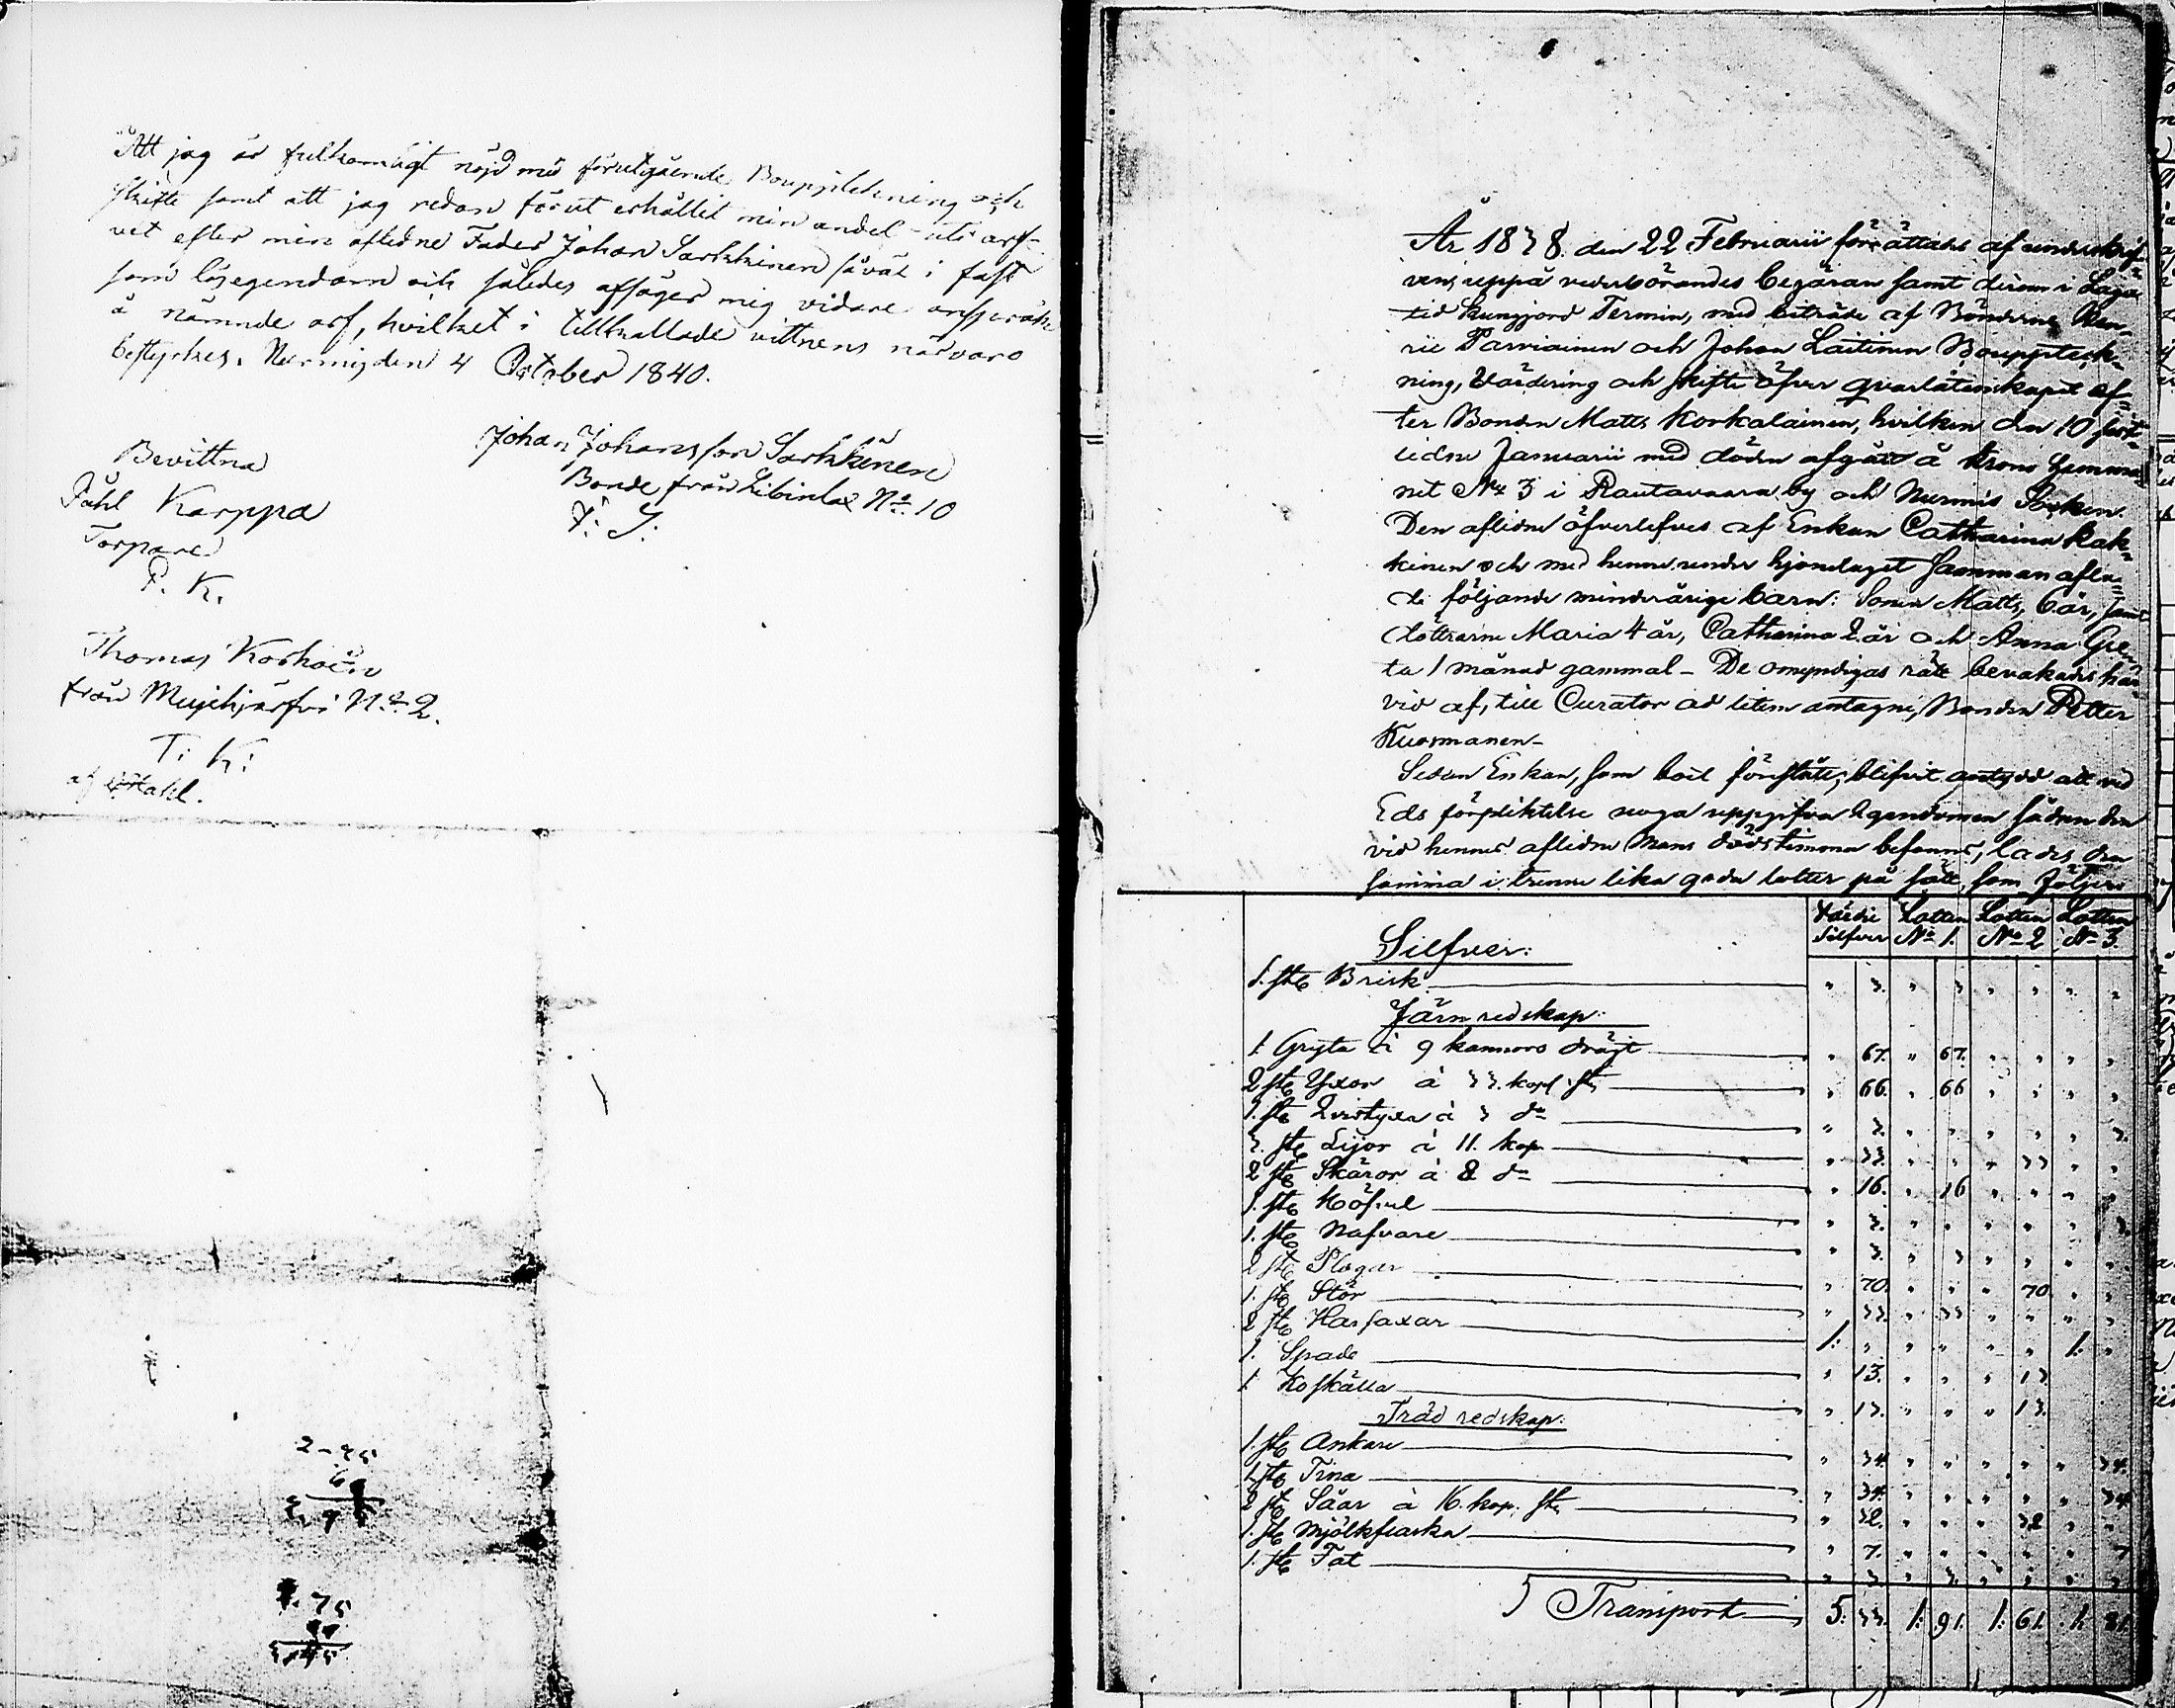 Att jag är fullkomligt nöjd med förutgående Bouppteckning och
skifte samt att jag redan förut erhållit min andel uti arf-
vet efter min aflidne Fader Johan Sarkkinen såväl i fast
som lösegendom och således afsäger mig vidare anspråk
å nämnde arf, hvilket i tillkallade vittnens närvaro
bestyrkes. Nurmis den 4 October 1840.
Johan Johansson Sarkkinen
Bonde från Libinlax No 10
J. S.
Bevittna
Påhl Karppa
Torpare
P. K.
Thomas Korhoin
från Mujehjärfvi No 2.
T. K.
af Stahl.
2-75
6
1.75
År 1838 den 22 Februarii förrättades af underskrif-
vens uppå vederbörandes begäran samt dersom i Laga
tid kungjord Termin, med biträde af Bönderne Hen-
ric Parviainen och Johan Laitinen Boupptek-
ning, Värdering och skifte öfver qvarlåtenskapet ef-
ter Bonden Matts Korkalainen, hvilken den 10 sist-
lidne Januarii med döden afgått å Krono Hemma-
net No 3 i Rautavaara by och Nurmis Socken.
Den aflidne öfverlefves af Enkan Catharina Kak-
kinen och med henne under hjonelaget sammanafla-
de följande minderårige barn: Sonen Matts, 6 år, samt
döttrarne Maria 4 år, Catharina 2 år och Anna Gre-
ta 1 månad gammal - De omyndigas rätt bevakades här-
vid af, till Curator ad litem antagne, Bonden Petter
Kuosmanen -
Sedan Enkan, som boet förestått, blifvit antydd att vid
Eds förpliktelse noga uppgifva Egendomen sådan den
vid hennes aflidne Mans dödstimma befanns, lades den
samma i trenne lika goda lotter på sätt som följer:
Värde Silfver Lotten No 1. Lotten No 2 Lotten No 3.
Silfver:
1. st Brisk " 3. " 3 " " " "
Järn redskap:
1. Gryta à 9 kannors drägt " 67. " 67. " " " "
2 st Yxor à 33. kop st " 66. " 66 " " " "
1. st Qvistyxa à 3 do " 3. " " " " " 3.
3. st Lijor à 11. kop " 33. " " " 33 " "
2 st Skäror à 8 do " 16. " 16 " " " "
1. st Höfvel " 3. " " " " " 3.
1. st Nafvare " 3. " 3 " " " "
2 st Plogar " 70. " " " 70. " "
1. st Stör " 33. " 33 " " " "
2 st Harfaxar 1: " " " " " 1: "
1. Spade " 13. " " " 13
1 Koskälla " 13. " " " 13.
Träd redskap:
1. st Ankare " 34. " " " " " 34.
1 st Tina " 34. " " " " " 34
2 st Såar à 16. kop. st " 32. " " " 32 " "
1. st Mjölkflaska " 7. " " " " " 7
1. st Fat " 3. " 3. " " " "
Transport 5: 33. 1: 91. 1: 61. 1: 81.